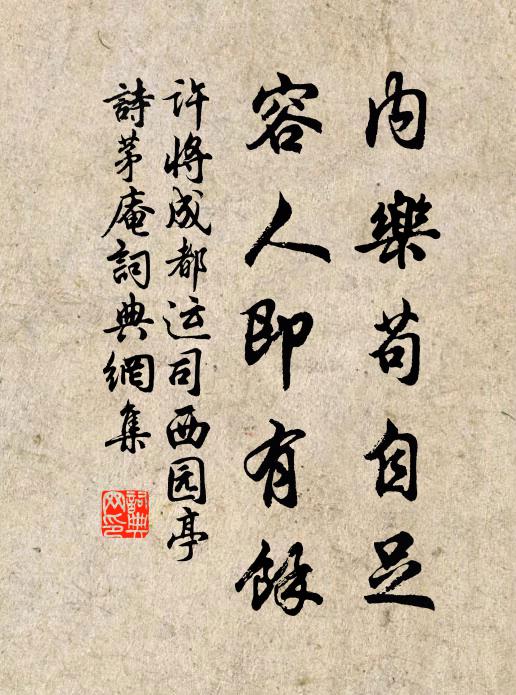 内樂苟自足
容人即有餘
许将成都运司西园亭
詩茅庵詞典網集
詞典網印